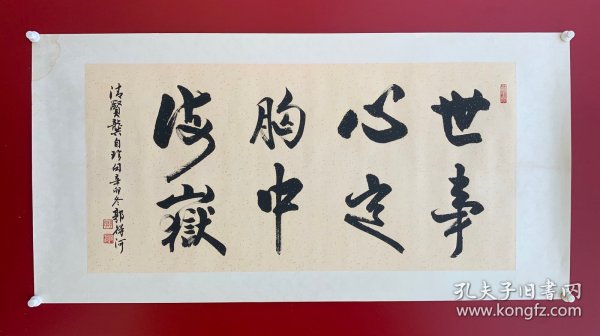 世事
心定
胸中
海嶽
清賢龔自珍句辛卯冬郭河
孔夫子旧书网
www.kongfz.com